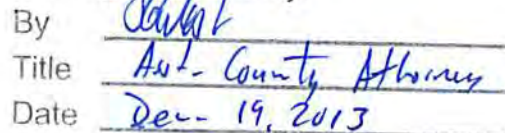 By
Title Asst. County Attorney
Date Dec. 19, 2013